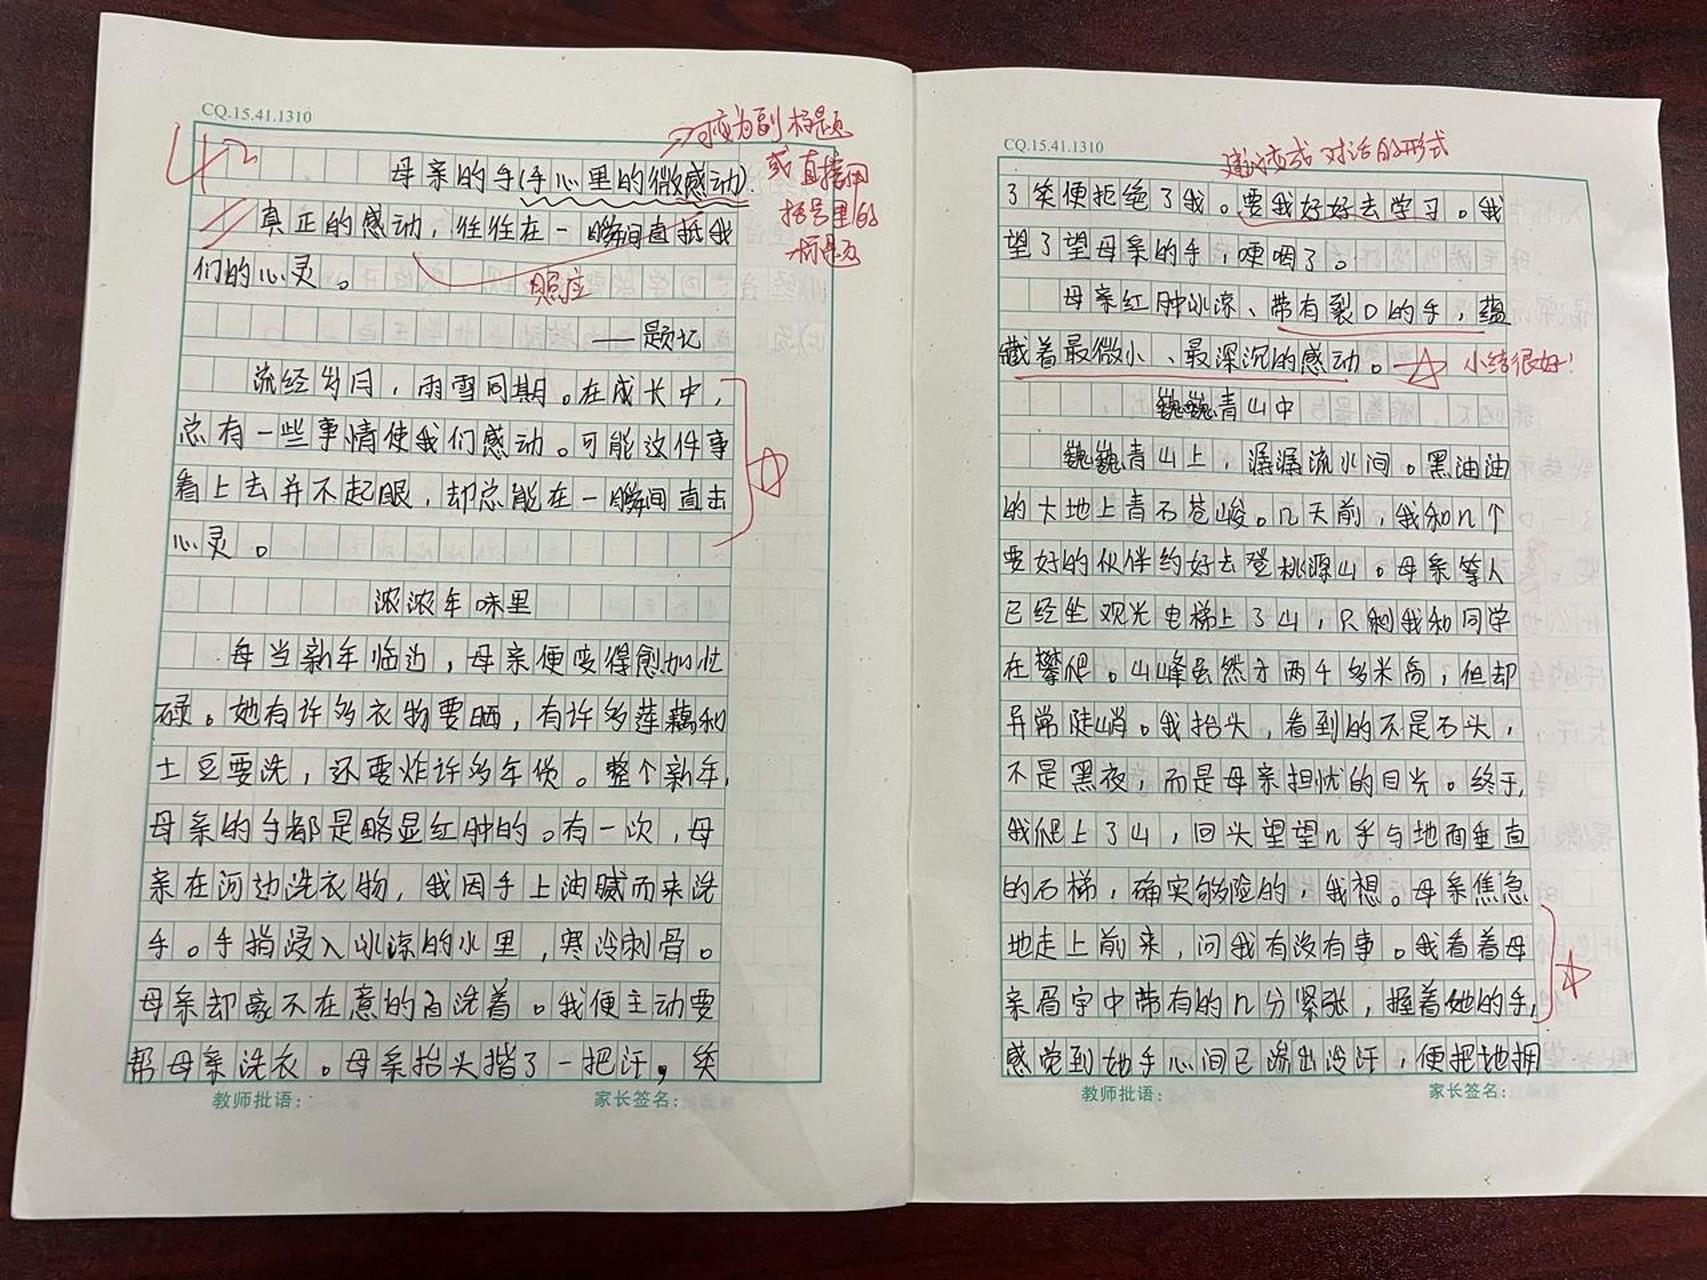 CQ.15.41.1310
42
应为副标题
或直接用
括号里的
标题
母亲的手(手心里的微感动)
真正的感动，往往在一瞬间直抵我
们的心灵。
照应
——题记
流经岁月，雨雪同期。在成长中，
总有一些事情使我们感动。可能这件事
看上去并不起眼，却总能在一瞬间直击
心灵。
浓浓年味里
每当新年临边，母亲便变得愈加忙
碌。她有许多衣物要晒，有许多莲藕和
土豆要洗，还要炸许多年货。整个新年，
母亲的手都是略显红肿的。有一次，母
亲在河边洗衣物，我因手上油腻而来洗
手。手指浸入冰凉的水里，寒冷刺骨。
母亲却毫不在意的自洗着。我便主动要
帮母亲洗衣。母亲抬头揩了一把汗，笑
教师批语：
家长签名：
CQ.15.41.1310
建议变成对话的形式
了笑便拒绝了我。要我好好去学习。我
望了望母亲的手，哽咽了。
母亲红肿冰凉、带有裂口的手，蕴
藏着最微小、最深沉的感动。
小结很好！
巍巍青山中
巍巍青山上，潺潺流水间。黑油油
的大地上青石苍峻。几天前，我和几个
要好的伙伴约好去登桃源山。母亲等人
已经坐观光电梯上了山，只剩我和同学
在攀爬。山峰虽然才两千多米高，但却
异常陡峭。我抬头，看到的不是石头，
不是黑夜，而是母亲担忧的目光。终于，
我爬上了山，回头望望几乎与地面垂直
的石梯，确实够险的，我想。母亲焦急
地走上前来，问我有没有事。我看着母
亲眉宇中带有的几分紧张，握着她的手，
感觉到她手心间已渗出冷汗，便把她拥
教师批语：
家长签名：